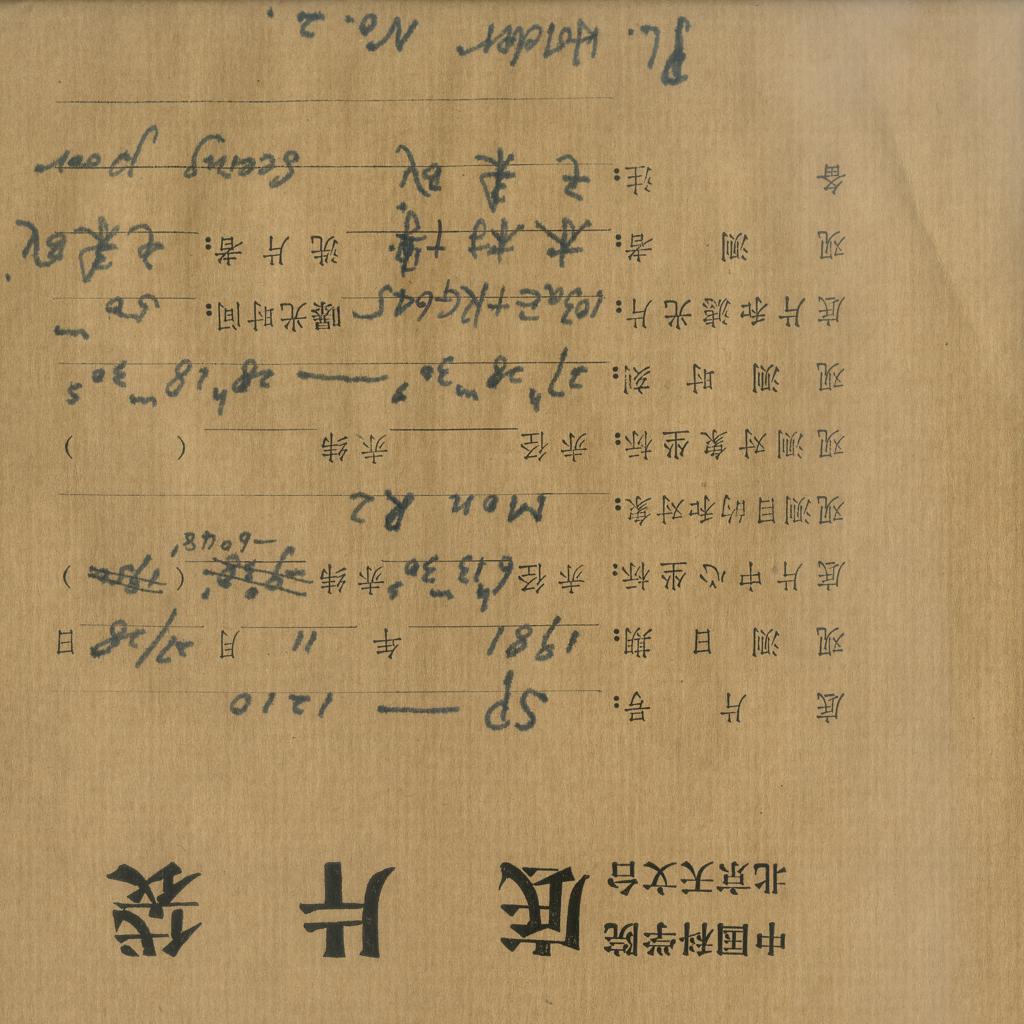 中国科学院
北京天文台
底片袋
底片号: SP — 1210
观测日期: 1981年 11月 27/28日
底片中心坐标: 赤径 6h13m30s 赤纬 -6°48' ( )
观测目的和对象: Mon R2
观测对象坐标: 赤径 赤纬 ( )
观测时刻: 27h28m30s — 28h18m30s
底片和滤光片: 103aE+RG645 曝光时间: 50m
观测者: 木村博 洗片者:
备注: Seeing poor
PL. Holder No. 2.